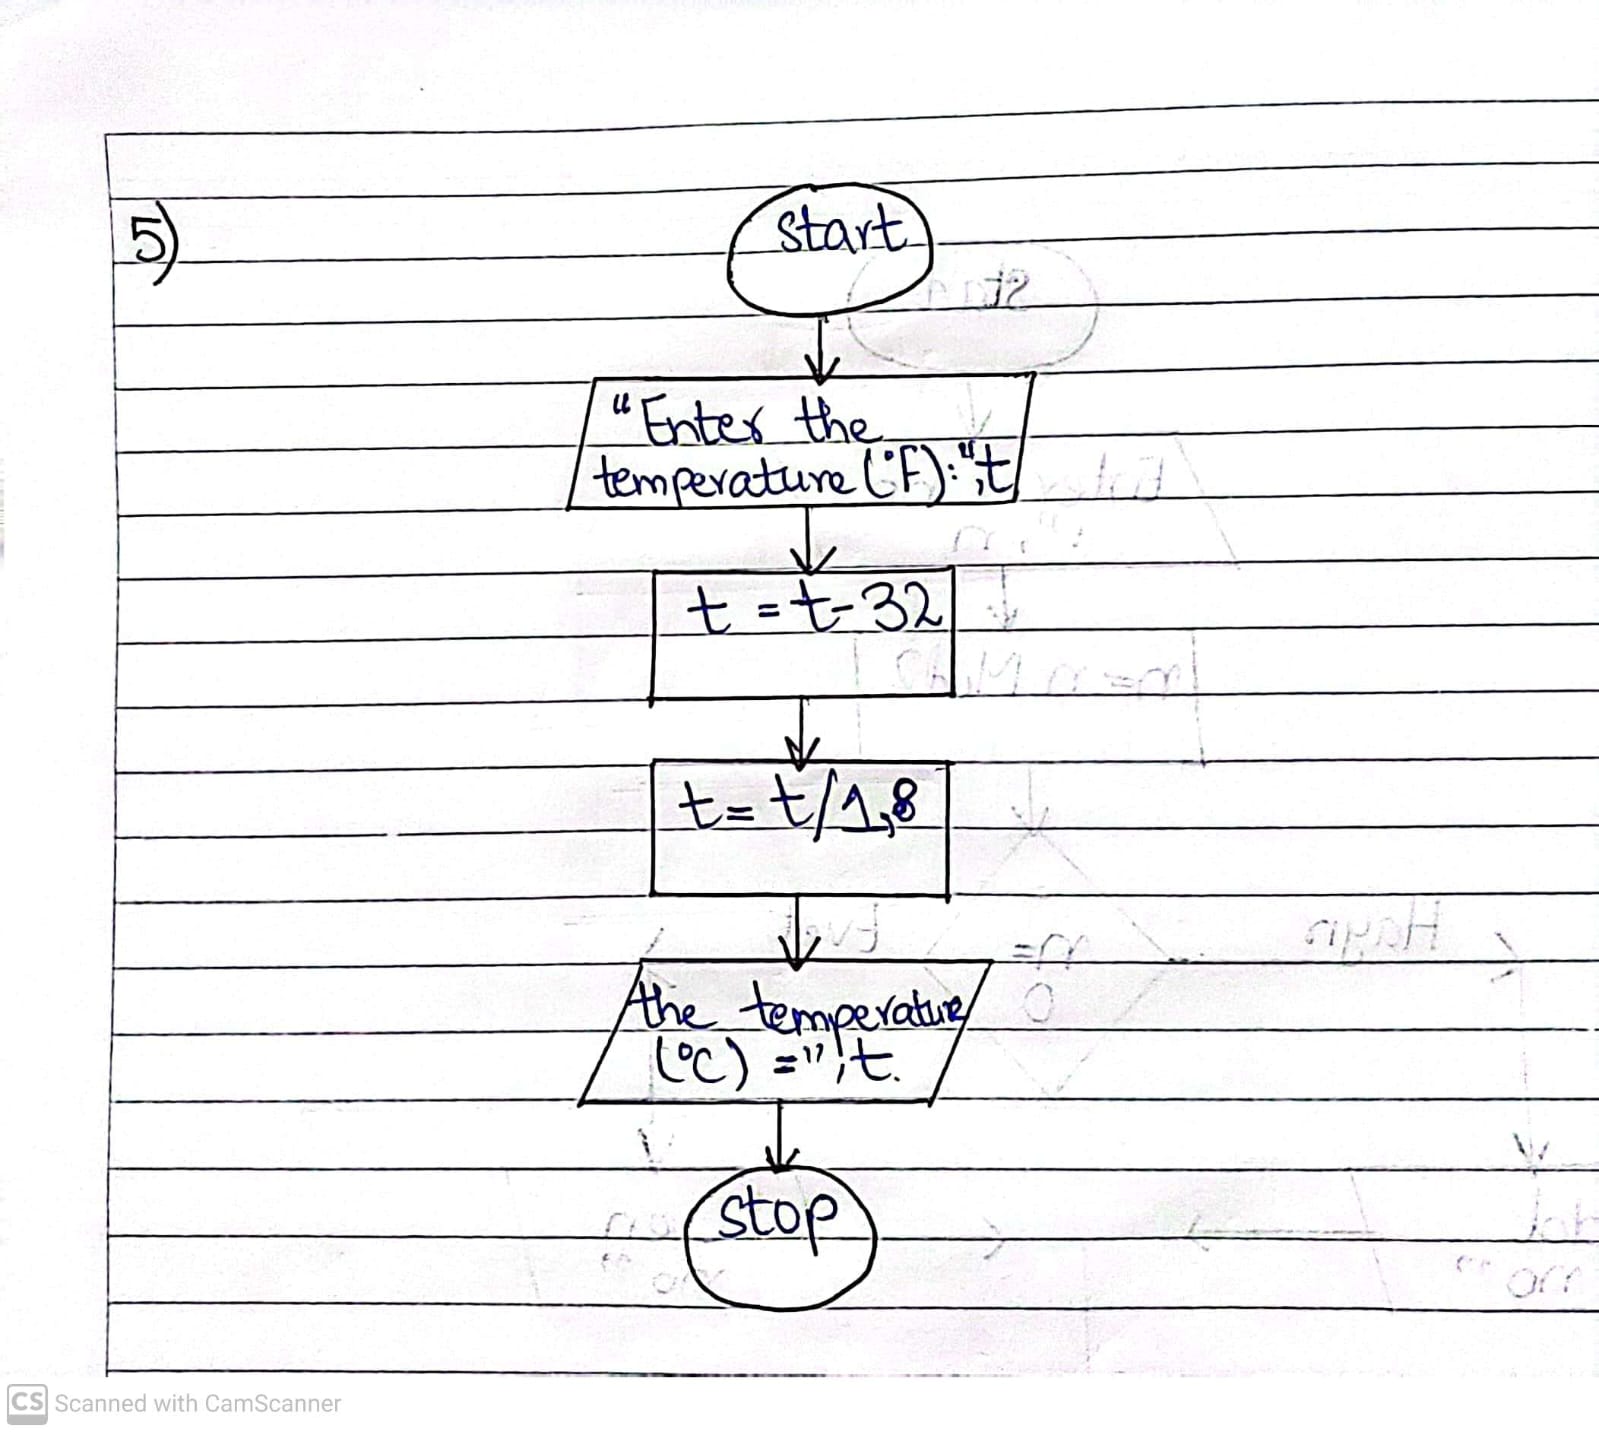 5)
start
"Enter the
temperature (°F):",t
t = t-32
t = t/1,8
the temperature
(°C) =",t.
stop
CS Scanned with CamScanner